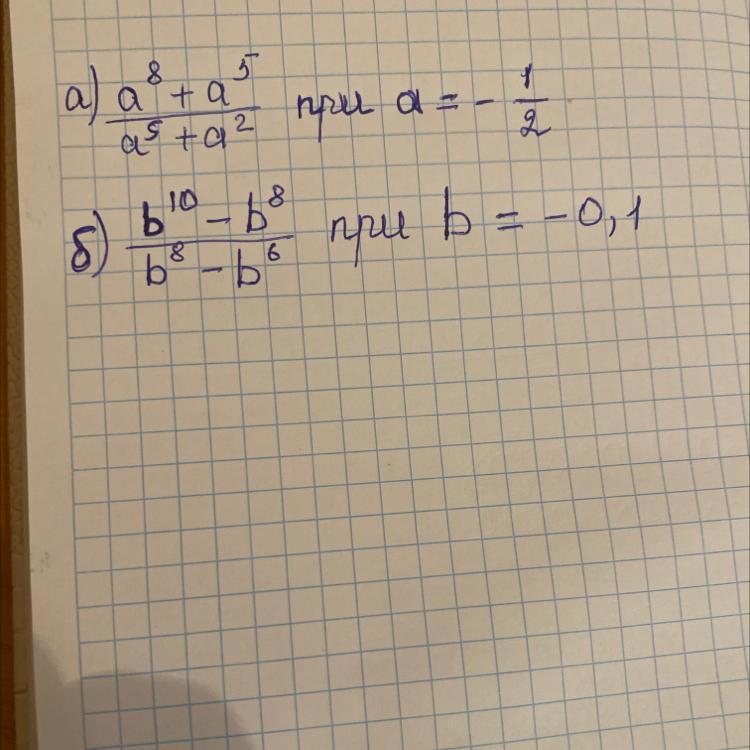 а) (a⁸ + a⁵)/(a⁵ + a²) при a = - 1/2
б) (b¹⁰ - b⁸)/(b⁸ - b⁶) при b = - 0,1